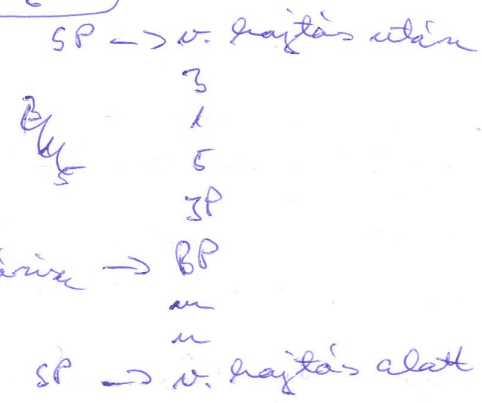 SP -> v. hajtás után
3
1
5
3P
-> BP
m
n
SP -> v. hajtás alatt